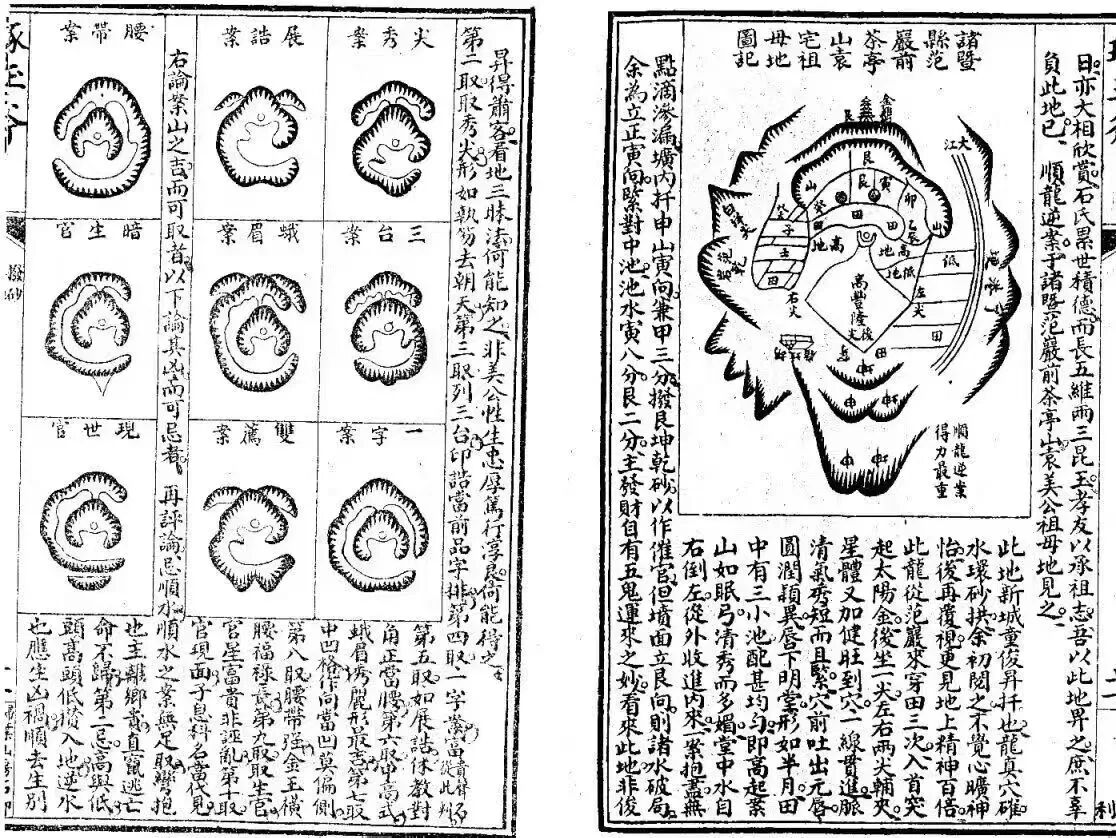 日亦大相欣賞石氏累世積德而長五維兩三昆玉孝友以承祖志吾以此地畀之庶不辜
負此地已 順龍逆案于諸暨范嚴前茶亭山袁美公祖母地見之
諸暨
縣范
嚴前
茶亭
山袁
宅祖
母地
圖記
大江
艮
寅
卯
山
山
田
田
高
地
高
地
低
低
田
左尖
右尖
田
高豐隆後尖
田
順龍逆案
得力最重
此地新城童俊昇扦也龍真穴確
水環砂拱余初閱之不覺心曠神
怡後再覆視更見地上精神百倍
此龍從范嚴來穿田三次入首突
起太陽金後坐一尖左右兩尖輔夾
星體又加健旺到穴一線貫進脈
清氣秀短而且緊穴前吐出元唇
圓潤穎異唇下明堂形如半月田
中有三小池配甚均勻即高起案
山如眠弓清秀而多媚堂中水自
右倒左從外收進內來一案抱盡無
點滴滲漏壙內扦申山寅向兼甲三分撥艮坤乾砂以作催官但墳面立艮向則諸水破局
余為立正寅向緊對中池池水寅八分艮二分主發財自有五鬼運來之妙看來此地非俊
昇得蕭客看地三昧法何能知之非美公性生忠厚篤行淳良何能得之
第二取取秀尖形如執笏去朝天第三取列三台印誥當前品字排第四取一字案富貴從此辨
尖秀案
三台案
一字案
展誥案
蛾眉案
雙薦案
腰帶案
暗生官
現世官
第五取如展誥休教對
角正當腰第六取中高式
蛾眉秀麗形最吉第七取
中凹格作向當凹莫偏側
第八取腰帶强金玉橫
腰福祿長第九取取生官
官星富貴非誣亂第十取
官現面子息科名當代見
右論案山之吉而可取者以下論其凶而可忌者 再評論忌順水順水之案無足取彎抱
也主離鄉貴直竄逃亡
命不歸第二忌高與低
頭高頭低攢入地逆水
也應生凶禍順去生別
撥砂